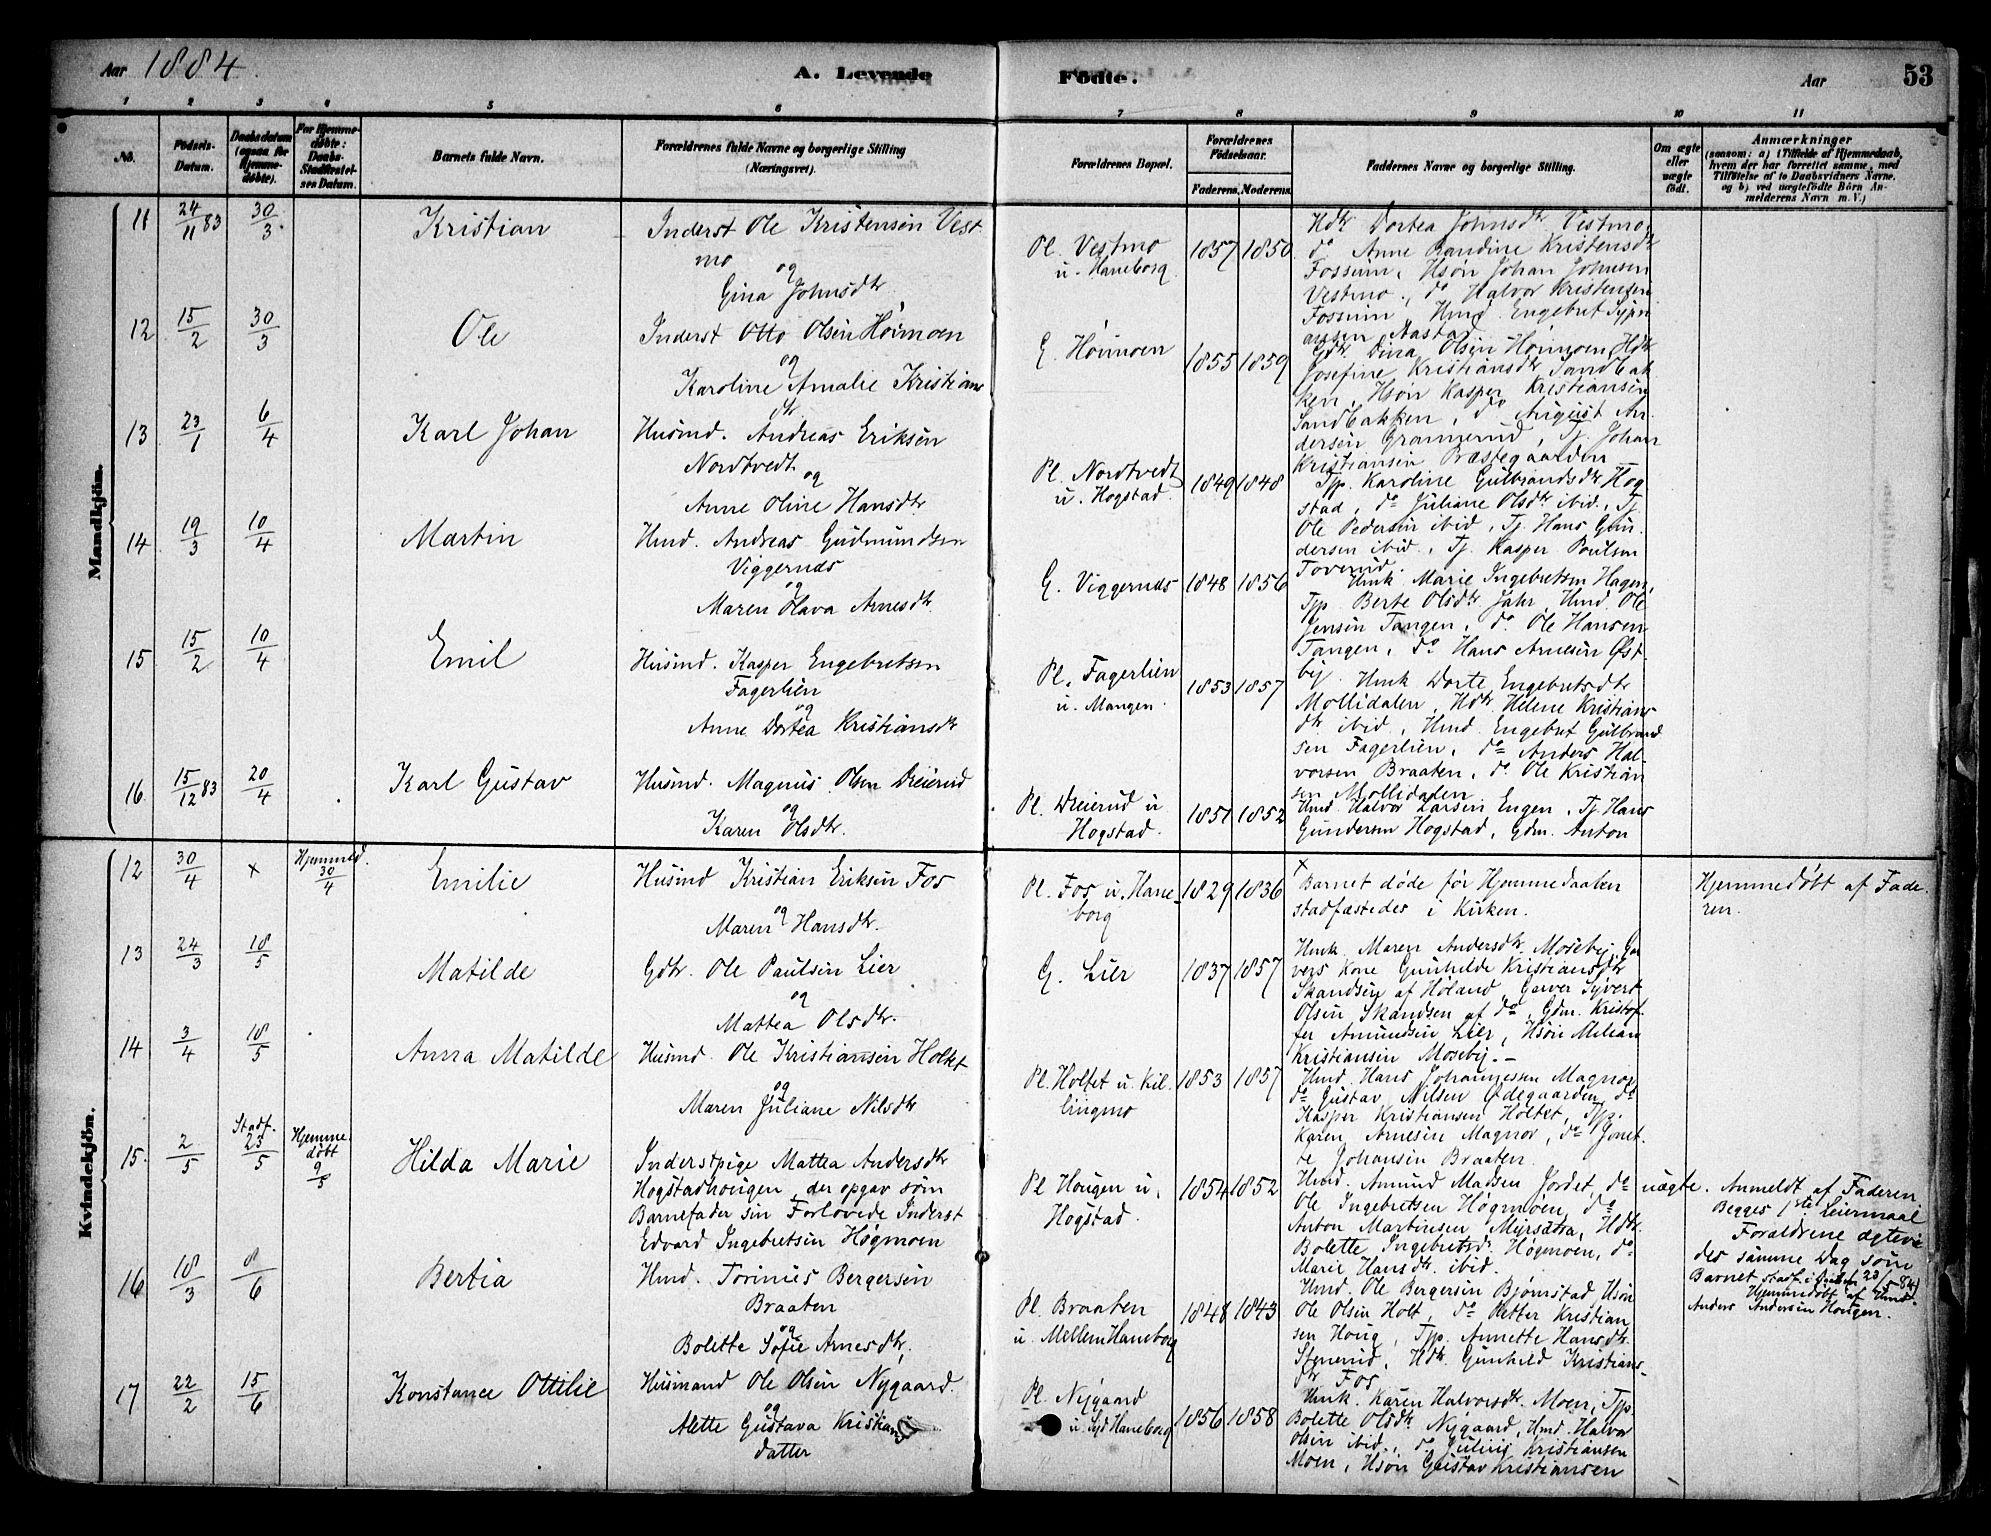 Aar 1884.
A. Levende
Födte.
Aar
53
1 2 3 4 5 6 7 8 9 10 11
No.
Födsels-
Datum.
Daabsdatum
(ogsaa for
Hjemme-
döbte).
For Hjemme-
döbte:
Daabs-
Stadfæstel-
sen Datum.
Barnets fulde Navn.
Forældrenes fulde Navne og borgerlige Stilling
(Næringsvei).
Forældrenes Bopæl.
Forældrenes
Födselsaar.
Faderens. Moderens.
Faddernes Navne og borgerlige Stilling.
Om ægte
eller
uægte
födt.
Anmærkninger
(saasom: a) i Tilfælde af Hjemmedaab,
hvem der har forrettet samme, med
Tilföielse af to Daabsvidners Navne,
og b) ved uægtefödte Börn An-
melderens Navn m. V.)
Mandkjön.
11
24/11 83
30/3
Kristian
Inderst Ole Kristensen Vest
mo
og
Gina Johnsdtr.
Pl. Vestmo
u. Haneborg
1857 1850
Hdtr Dortea Johnsdtr Vestmo,
do Anne Randine Kristensdtr
Fossum, Hsøn Johan Johnsen
Vestmo, do Halvor Kristensen
Fossum, Hmd. Engebret
Aastad
12
15/2
30/3
Ole
Inderst Otto Olsen Høimoen
og
Karoline Amalie Kristians
dtr
G. Høimoen
1855 1859
Gdtr. Dina Olsen Høimoen, Hdtr
Josefine Kristiansdtr Sandbak
ken, Hsøn Kasper Kristiansen
Sandbakken, do August An-
dersen Grannerud, Tj. Johan
Kristiansen Præstegaarden
13
23/1
6/4
Karl Johan
Husmd. Andreas Eriksen
Nordtvedt
og
Anne Oline Hansdtr
Pl. Nordtvedt
u. Hogstad.
1849 1848
Tjp. Karoline Gulbrandsdtr Hog
stad, do Juliane Olsdtr ibid, Tj.
Ole Pedersen ibid, Tj. Hans Gun-
dersen ibid, Tj. Kasper Poulsen
Toverud.
14
19/3
10/4
Martin
Hmd. Andreas Gudmundsen
Viggernds
og
Maren Olava Arnesdtr.
G. Viggernds
1848 1856
Hmk. Marie Ingebretsen Hagen,
Tjp. Berte Olsdtr Jahr, Hmd. Ole
Jensen Tangen, do. Ole Hansen
Tangen, do Hans Arnesen Øst-
by.
15
15/2
10/4
Emil
Husmd. Kasper Engebretsen
Fagerlien
og
Anne Dortea Kristiansdtr
Pl. Fagerlien
u. Mangen.
1853 1857
Hmk Dorte Engebretsdtr
Mollidalen, Hdtr Helene Kristians
dtr ibid, Hmd. Engebret Gulbrand
sen Fagerlien, do Anders Hal-
vorsen Braaten, do. Ole Kristian
sen Mollidalen
16
15/12 83
20/4
Karl Gustav
Husmd. Magnus Olsen Dreierud
og
Karen Olsdtr.
Pl. Dreierud u
Hogstad.
1851 1852
Hmd. Halvor Larsen Engen, Tj. Hans
Gundersen Hogstad, Gdm. Anton
Kvindekjön.
12
30/4
x
Hjemmed.
30/4
Emilie
Husmd Kristian Eriksen Fos
og
Maren Hansdtr.
Pl. Fos u. Hane-
borg
1829 1836
x
Barnet døde før Hjemmedaaben
stadfæstedes i Kirken.
Hjemmedøbt af Fade-
ren.
13
24/3
18/5
Matilde
Gdbr. Ole Paulsen Lier
og
Mattea Olsdtr.
G. Lier
1837 1857
Hmk. Maren Andersdtr Moseby, Gar
vers Kone Gunhilde Kristiansdtr
Skandsen af Høland, Garver Syvert
Olsen Skandsen af do, Gdm. Kristof-
fer Amundsen Lier, Hsøn Milian
Kristiansen Moseby.-
14
3/4
18/5
Anna Matilde
Husmd. Ole Kristiansen Holtet
og
Maren Juliane Nilsdtr
Pl. Holtet u. Kil-
lingmo
1853 1857
Hmd. Hans Johannessen Magnor,
do Gustav Nilsen Ødegaarden, do
Kasper Kristiansen Holtet, Tjp.
Karen Arnesen Magnor, do Jonet-
te Johansen Braaten.
15.
2/5
Stadf.
25/5
Hjemme-
døbt
9/5
Hilda Marie
Inderstpige Mattea Andersdtr
Hogstadhougen, der opgav som
Barnefader sin Forlovede Inderst
Edvard Ingebretsen Høgmoen
Pl Hougen u.
Hogstad.
1854 1852
Hmd. Amund Madsen Jordet, do
Ole Ingebretsen Høgmoen, do
Anton Martinsen Myrsætra, Hdtr.
Bolette Ingebretsd. Høgmoen, do
Marie Hansdtr. ibid.
uægte.
Anmeldt af Faderen.
Begges 1ste Leiermaal
Forældrene ægtevie
des samme Dag som
Barnet stadf. i Kirken
Hjemmedøbt af Hmd.
Anders Andersen Hougen.
16
18/3
8/6
Bertia
Hmd. Torinus Bergersen
Braaten
og
Bolette Sofie Arnesdtr.
Pl. Braaten
u. Mellem Haneborg
1848 1843
Hmd. Ole Bergersen Bjørnstad, Hsøn
Ole Olsen Holt, do Petter Kristian
sen Houg, Tjp. Annette Hansdtr.
Stenerud, Hdtr. Gunhild Kristians-
dtr Fos
17
22/2
15/6
Konstance Ottilie
Husmand Ole Olsen Nygaard.
og
Alette Gustava Kristians
datter
Pl. Nygaard
u. Syd Haneborg
1856 1858
Hmk. Karen Halvorsdtr. Moen, Tjp.
Bolette Olsdtr Nygaard, Hmd. Halvor
Olsen ibid, do. Julius Kristiansen
Moen, Hsøn Gustav Kristiansen